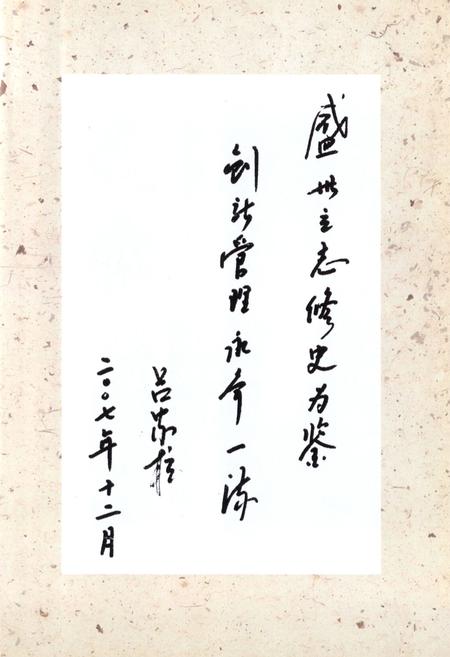 盛世立志修史为鉴
创新管理永争一流
吕家柱
二〇〇七年十二月